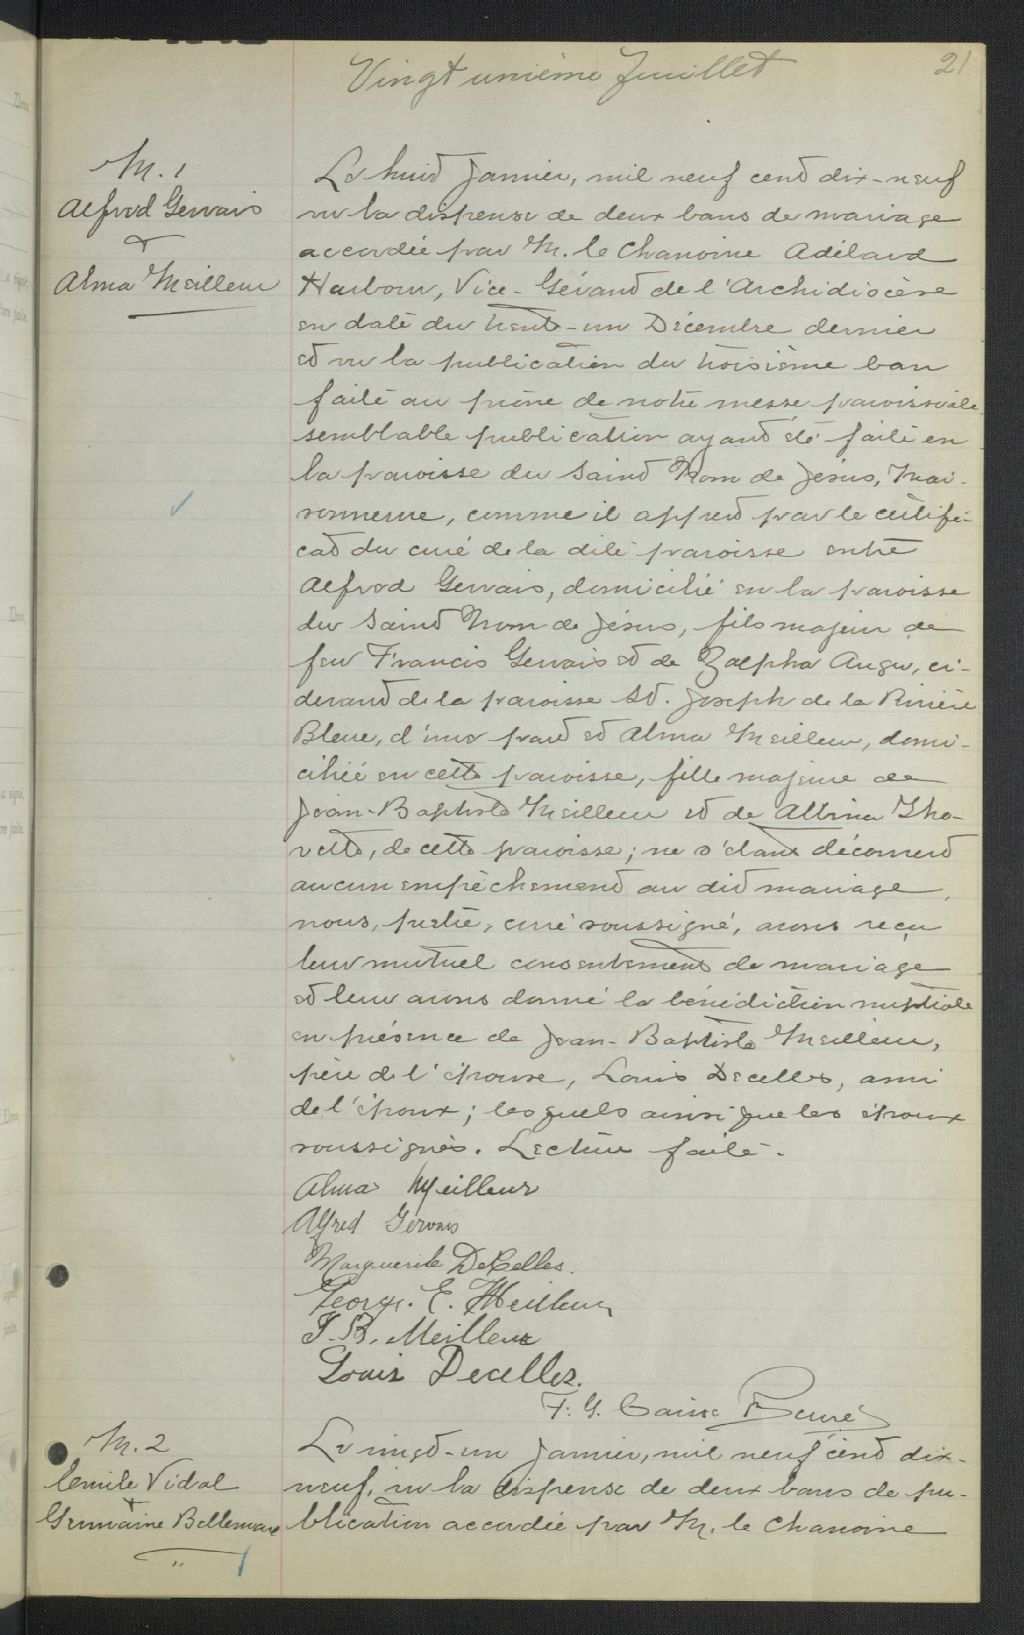 Vingt unième feuillet
21
M. 1
Alfred Gervais
&
Alma Meilleur
Le huit Janvier, mil neuf cent dix-neuf
vu la dispense de deux bans de mariage
accordée par M. le Chanoine Adélard
Harbour, Vice-Gérant de l'Archidiocèse
en date du trente-un Décembre dernier
et vu la publication du troisième ban
faite au prône de notre messe paroissiale
semblable publication ayant été faite en
la paroisse du Saint Nom de Jésus, Mai-
sonneuve, comme il appert par le certifi-
cat du curé de la dite paroisse entre
Alfred Gervais, domicilié en la paroisse
du Saint Nom de Jésus, fils majeur de
feu Francis Gervais et de Zalpha Auger, ci-
devant de la paroisse St. Joseph de la Rivière
Bleue, d'une part et Alma Meilleur, domi-
ciliée en cette paroisse, fille majeure de
Jean-Baptiste Meilleur et de Albina Cho-
vette, de cette paroisse; ne s'étant découvert
aucun empêchement au dit mariage,
nous, prêtre, curé soussigné, avons reçu
leur mutuel consentement de mariage
et leur avons donné la bénédiction nuptiale
en présence de Jean-Baptiste Meilleur,
père de l'épouse, Louis Decelles, ami
de l'époux; lesquels ainsi que les époux
soussignés. Lecture faite.
Alma Meilleur
Alfred Gervais
Marguerite DeCelles.
George. E. Meilleur
J. B. Meilleur
Louis Decelles.
F. G. Caisse Ptre curé
M. 2
Emile Vidal
&
Germaine Bellemare
Le vingt-un Janvier, mil neuf cent dix-
neuf, vu la dispense de deux bans de pu-
blication accordée par M. le Chanoine